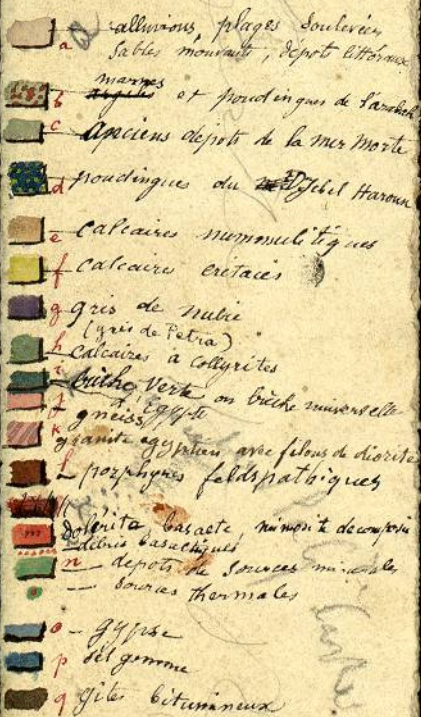 a alluvions, plages soulevées
sables mouvants, dépots littoraux
marnes
b argiles et poudingues de l'arabah
c anciens depots de la mer morte
d poudingues du Djebel Haroun
e calcaires nummulitiques
f calcaires cretacés
g gris de nubie
(gris de Petra)
h calcaires à collyrites
i brèche verte
d'Egypte ou brèche universelle
j gneiss
k granite egyptien avec filons de diorite
l porphyres feldspathiques
dolerite basalte, mimosite decomposée
débris basaltiques
n depots de sources minerales
sources thermales
o gypse
p sel gemme
q gites bitumineux